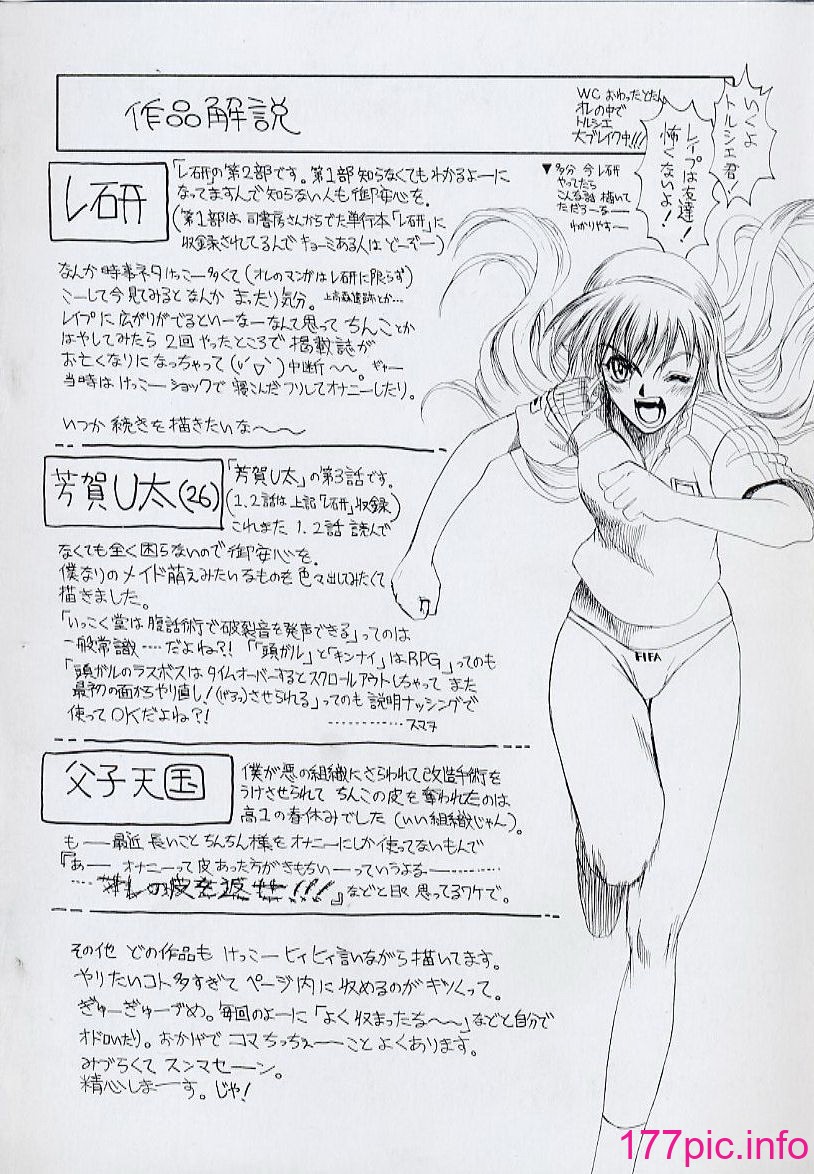 作品解説
WC おわったとたん
オレの中で
トルシエ
大ブレイク中!!!
いくよ
トルシエ君!
レイプは友達!
怖くないよ!
▼多分 今レ研
やってたら
こんな話 描いて
ただろーるー
わかりやすー
レ研
「レ研」の第2部です。第1部 知らなくてもわかるよーに
なってますんで知らない人も御安心を。
(第1部は 司書房さんからでた単行本「レ研」に
収録されてるんで キョーミある人は どーぞー)
なんか 時事ネタ けっこー多くて (オレのマンガはレ研に限らず)
こーして今見てみると なんか まったり気分。 上高森遺跡とか…
レイプに広がりがでるといーなーなんて思って ちんことか
はやしてみたら 2回 やったところで 掲載誌が
お亡くなりになっちゃって 中断〜〜。ギャー
当時は けっこー ショックで 寝こんだフリしてオナニーしたり。
いつか 続きを描きたいな〜〜
芳賀U太(26)
「芳賀U太」の第3話です。
(1.2話は 上記「レ研」収録)
これまた 1.2話 読んで
なくても全く困らないので御安心を。
僕なりのメイド萌えみたいなものを色々出してみたくて
描きました。
「いっこく堂は腹話術で破裂音を発声できる」ってのは
一般常識……だよね?! 「「頭ガル」と「キンナイ」はRPG」ってのも
「頭ガルのラスボスは タイムオーバーするとスクロールアウトしちゃって また
最初の面からやり直し!させられる」ってのも 説明ナッシングで
使ってOKだよね?!
……………スマヌ
父子天国
僕が悪の組織にさらわれて改造手術を
うけさせられて ちんこの皮を奪われたのは
高1の春休みでした (いい組織じゃん)。
も――最近 長いこと ちんちん様を オナニーにしか使ってないもんで
『あ―― オナニーって皮あった方がきもちい――っていうよる――…………
…オレの皮を返せ――!!!』などと日々 思ってるワケで。
その他 どの作品も けっこー ヒィヒィ言いながら描いてます。
やりたいコト多すぎて ページ内に 収めるのが キツくって。
ぎゅーぎゅーづめ。毎回のよーに「よく収まったな〜〜」などと自分で
オドロいたり。おかげで コマちっちぇ――こと よくあります。
みづらくて スンマセ――ン。
精心しま――す。じゃ!
FIFA
177pic.info